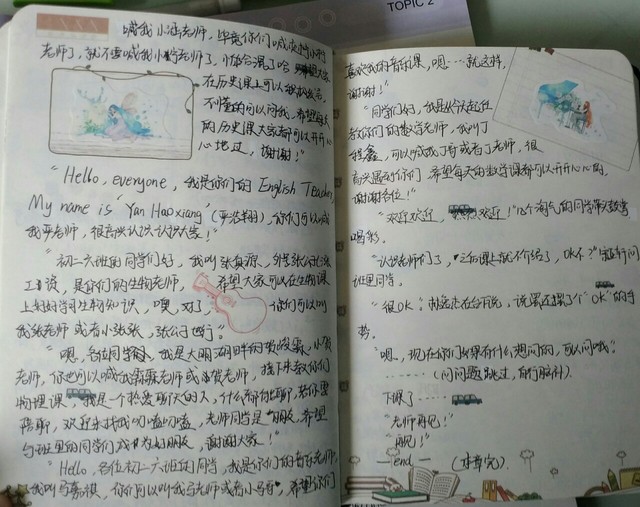 TOPIC 2
喊我小
老师了，就不要喊我小老师了，
在历史课上可以
不懂的可以问我，希望每天
的历史课大家都可以开开心
心地过，谢谢！"
"Hello, everyone, 我是你们的 English Teacher,
My name is "Yan Haoxiang"（严浩翔），你们可以喊
我严老师，很高兴认识认识大家！"
"初二六班的同学们好，我叫张真源，
是你们的生物老师，希望大家可以在生物课
上好好学习生物知识，噢，对了，你们可以叫
我张老师或者小张张，张公
"嗯，各位同学，我是大丽湖畔的贺峻霖，小贺
老师，你也可以喊我霖霖老师或贺老师，接下来教你们
物理课，我是一个热爱聊天的人，什么都可聊，若你需
陪聊，欢迎来找我叨嗑叨嗑，老师同学是朋友，希望
与班里的同学们成为好朋友，谢谢大家！"
"Hello, 各位初二六班的同学，我是你们的音乐老师，
我叫马嘉祺，你们可以叫我马老师或者小马哥，希望你们
喜欢我的音乐课，嗯……就这样，
谢谢！"
"同学们好，我是今天起任
教你们的数学老师，我叫丁
程鑫，可以喊我丁哥或者丁老师，很
高兴遇到你们，希望每天的数学课都可以开开心心的，
谢谢各位！"
"欢迎欢迎，欢迎！"几个淘气的同学带头鼓掌
喝彩。
"认识老师们了，之后课上就不介绍了，OK不？"
班里同学。
"很OK。"在台下说，说罢还摆了个"OK"的手
势。
"嗯，现在你们如果有什么想问的，可以问哦。"
……（问问题跳过，自行脑补）
下课了
"老师再见！"
"再见！"
—end—（本章完）.